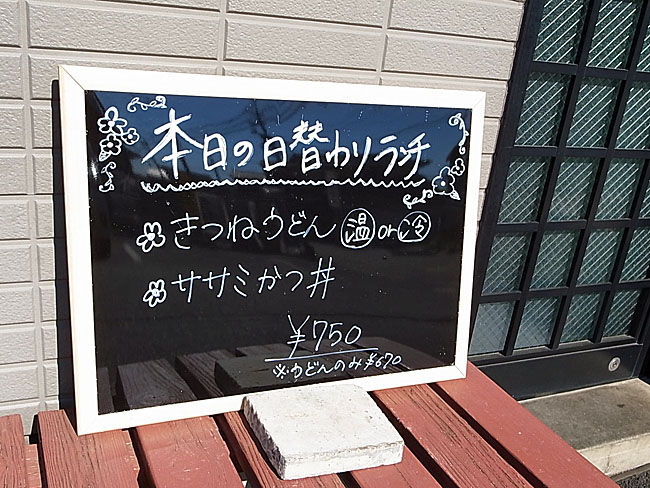 本日の日替わりランチ
きつねうどん 温 or 冷
ササミかつ丼
¥750
※うどんのみ ¥670